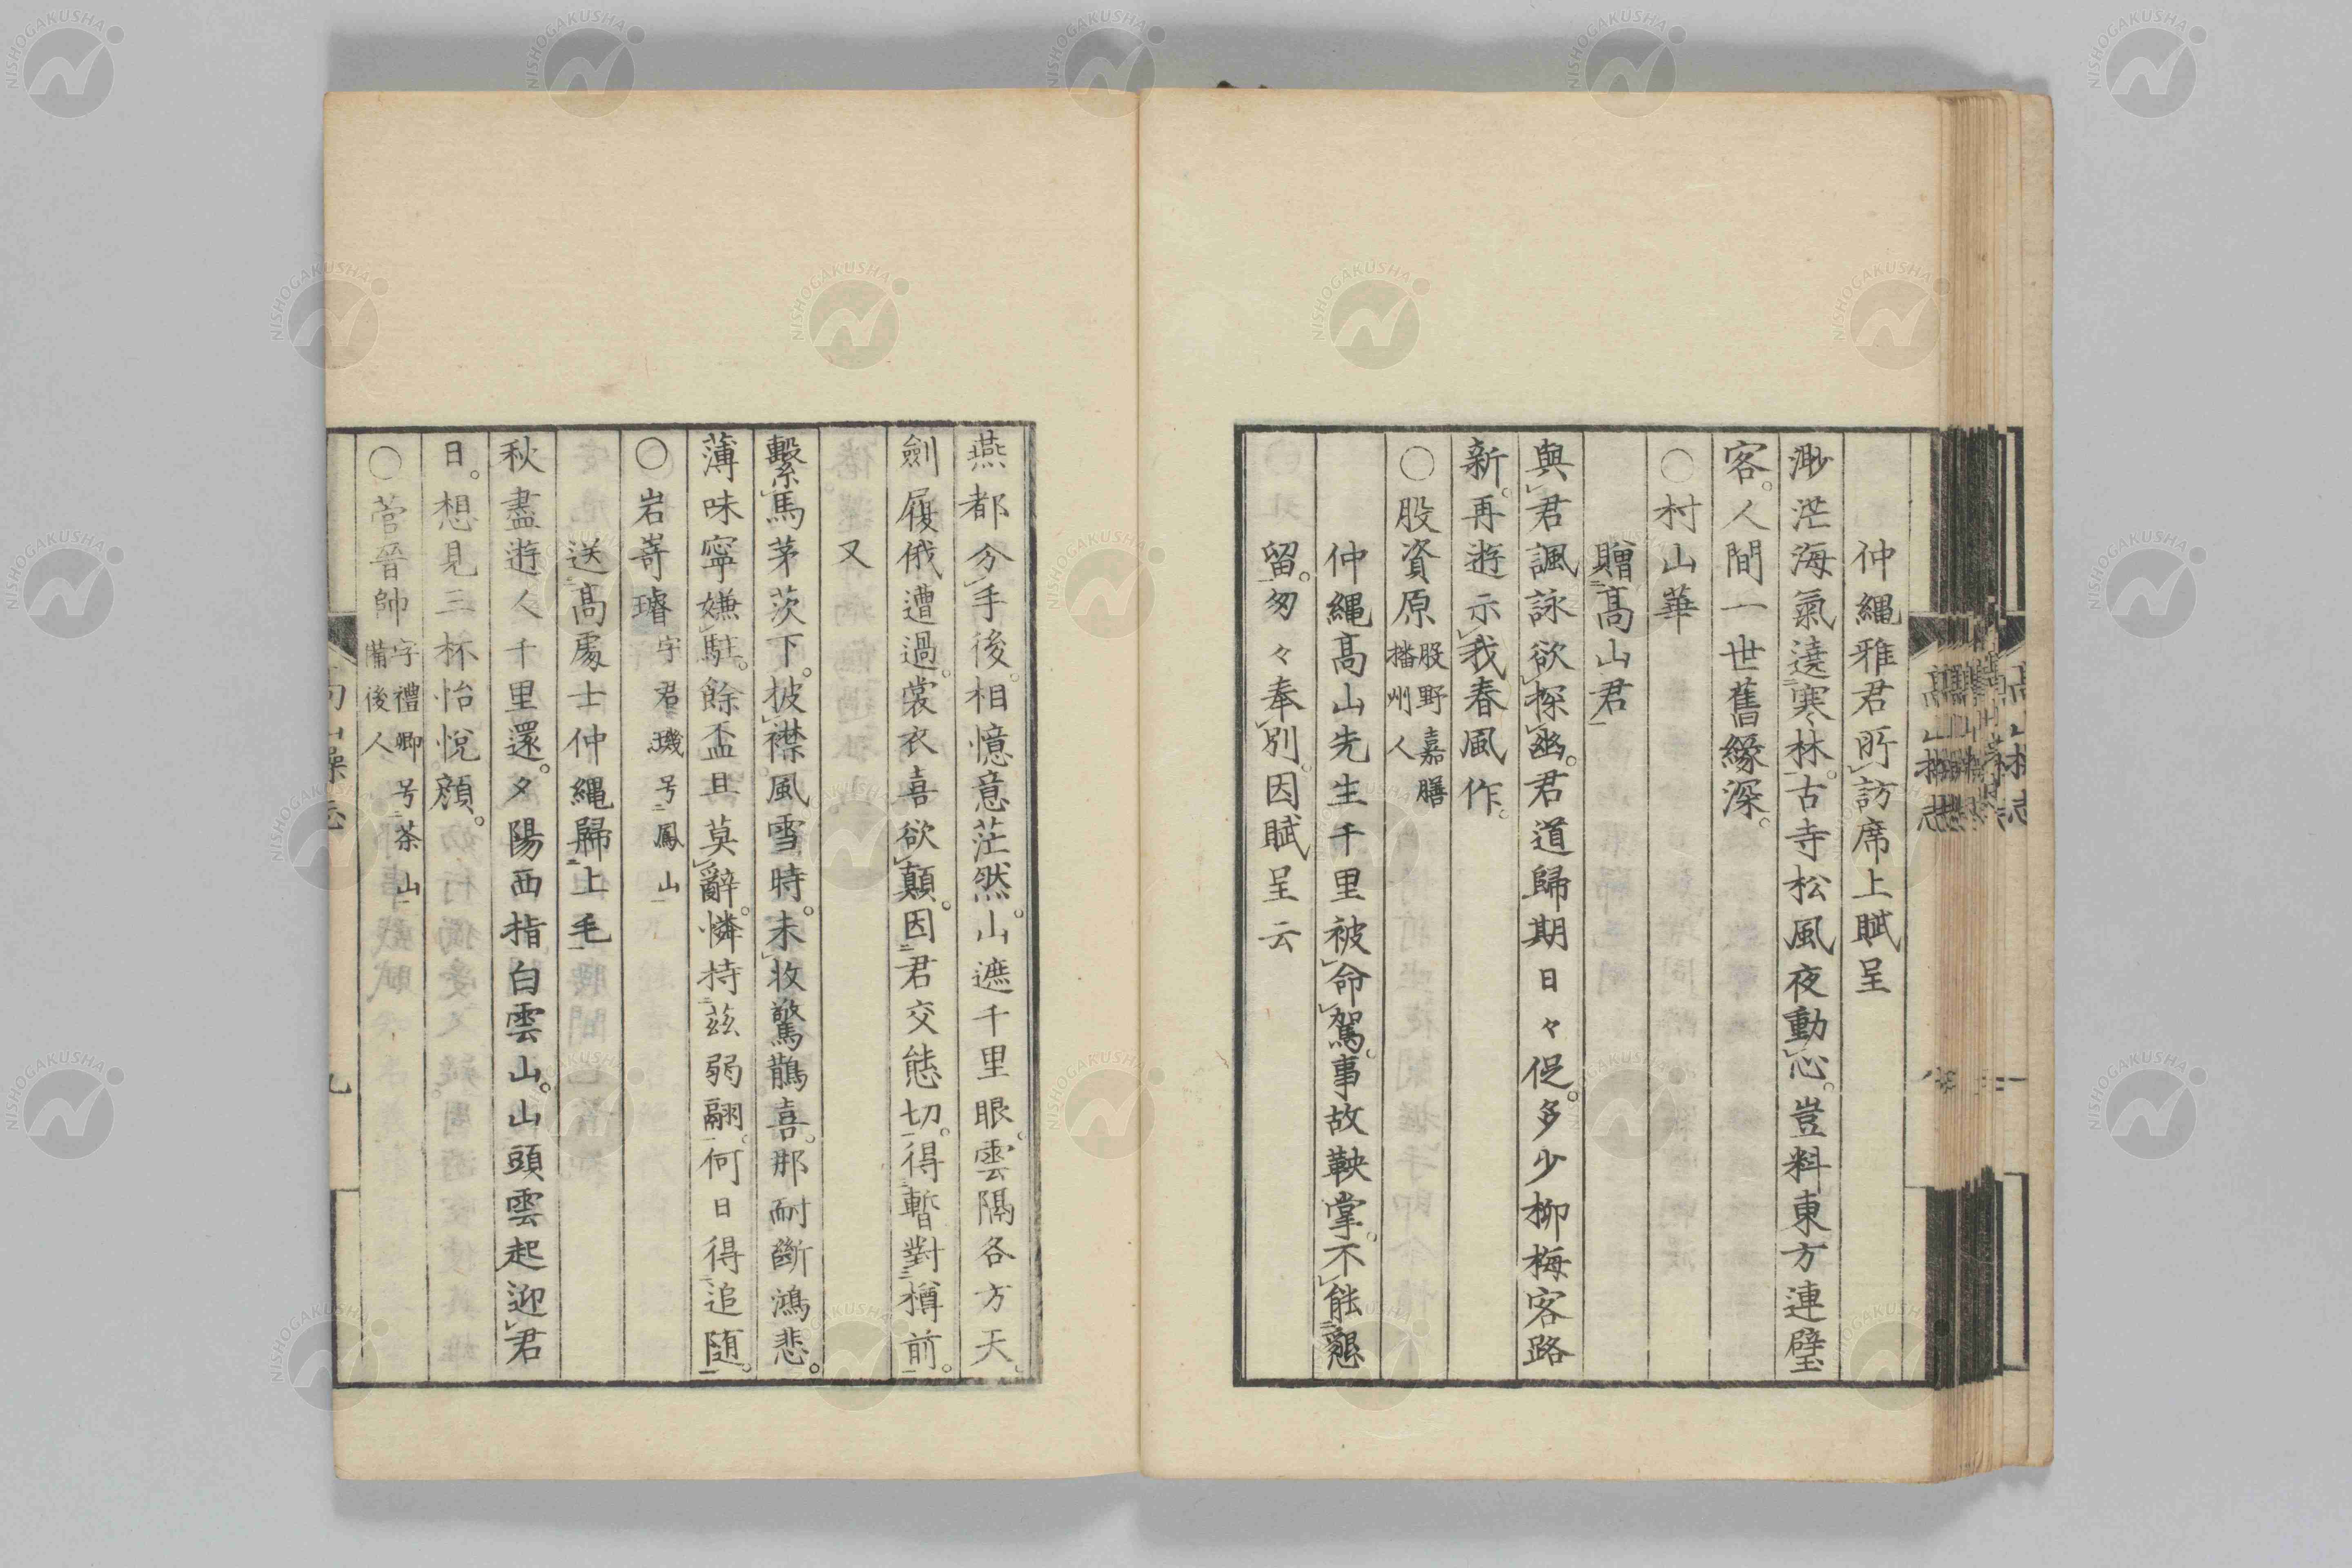 仲縄雅君所訪席上賦呈
渺茫海氣遶寒林。古寺松風夜動心。豈料東方連璧
客。人間一世舊緣深。
〇村山華
贈高山君
與君諷詠欲探幽。君道歸期日々促。多少柳梅客路
新。再遊示我春風作。
〇股資原股野嘉膳播州人
仲縄高山先生千里被命駕。事故鞅掌。不能懇
留。匆々奉別。因賦呈云
燕都分手後。相憶意茫然。山遮千里眼。雲隔各方天。
劍履俄遭過。裳衣喜欲顛。因君交態切。得暫對樽前。
又
繫馬茅茨下。披襟風雪時。未收驚鵲喜。那耐斷鴻悲。
薄味寧嫌駐。餘盃且莫辭。憐持茲弱翮。何日得追随。
〇岩嵜璿字君璣号鳳山
送高處士仲縄歸上毛
秋盡遊人千里還。夕陽西指白雲山。山頭雲起迎君
日。想見三杯怡悅顏。
〇菅晉帥字禮卿号茶山備後人
NISHOGAKUSHA